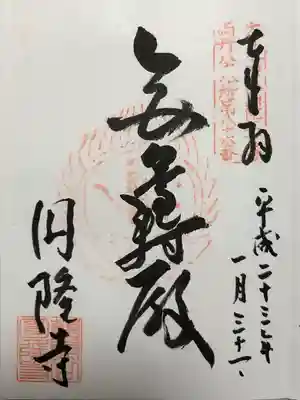 奉拝
平成二十三年
一月三十一日
無量壽殿
円隆寺